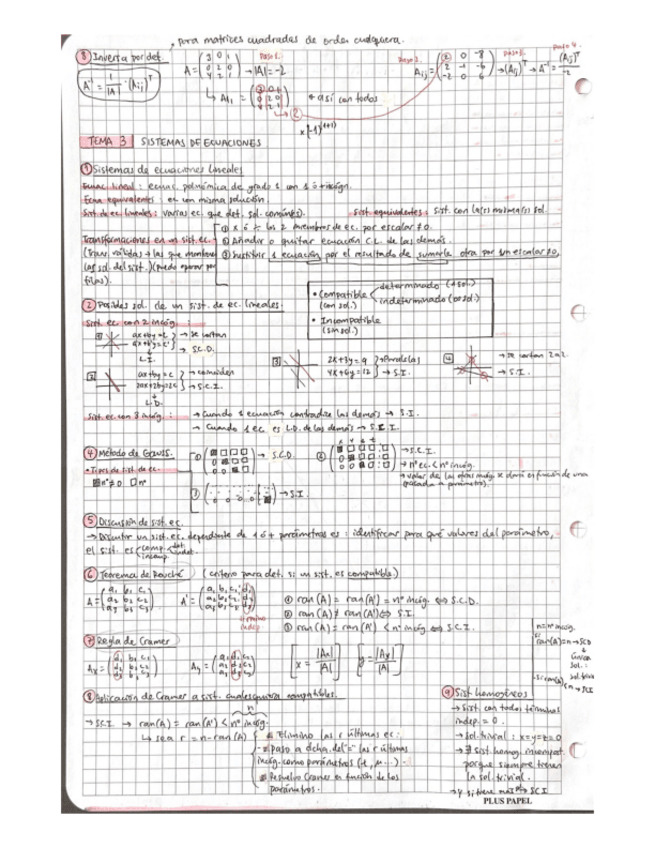 para matrices cuadradas de orden cualquiera.
⑧ Inversa por det.
A⁻¹ = 1/|A| · (Aij)ᵀ
A = (3 0 1 / 0 2 0 / 4 2 1) → |A| = -2
Paso 2.
Aij = (2 0 -8 / 2 -1 -6 / -2 0 6) → (Aij)ᵀ → A⁻¹ = (Aij)ᵀ/-2
Paso 3.
Paso 4.
↳ A11 = * así con todos
x(-1)^(1+1)
TEMA 3 SISTEMAS DE ECUACIONES
① Sistemas de ecuaciones lineales
Ecuac. lineal: ecuac. polinómica de grado 1 con 1 ó + incógn.
Ecua. equivalentes: en un misma solución.
Sist. de ec. lineales: varias ec. que det. sol. común(es). Sist. equivalentes: sist. con la(s) misma(s) sol.
Transformaciones en un sist. ec.
(Trans. válidas → las que mantienen las sol. del sist.) (puedo operar por filas).
① x ó ÷ los 2 miembros de ec. por escalar ≠ 0.
② Añadir o quitar ecuación C.L. de las demás.
③ Sustituir 1 ecuación por el resultado de sumarle otra por un escalar ≠ 0.
② Posibles sol. de un sist. de ec. lineales.
• Compatible (con sol.) determinado (1 sol.) indeterminado (∞ sol.)
• Incompatible (sin sol.)
Sist. ec. con 2 incóg.:
1 ax+by=c a'x+b'y=c' } → se cortan → S.C.D.
L.I.
2 ax+by=c 2ax+2by=2c } → coinciden → S.C.I.
L.D.
3 2x+3y=9 4x+6y=12 } → Paralelas → S.I.
4 → se cortan 2 a 2. → S.I.
Sist. ec. con 3 incóg.: → Cuando 1 ecuación contradice las demás → S.I.
→ Cuando 1 ec. es L.D. de las demás → S.C.I.
④ Método de Gauss.
• Tipos de sist. de ec.
■ nº ≠ 0 □ nº
① → S.C.D.
② x y z t → S.C.I.
→ nº ec. < nº incóg.
→ valor de las otras incóg. se darán en función de una
③ → S.I.
⑤ Discusión de sist. ec.
→ Discutir un sist. ec. dependiente de 1 ó + parámetros es: identificar para qué valores del parámetro,
el sist. es comp. det. indet. incomp.
⑥ Teorema de Rouché (criterio para det. si un sist. es compatible.)
A = (a₁ b₁ c₁ / a₂ b₂ c₂ / a₃ b₃ c₃) A' = (a₁ b₁ c₁ d₁ / a₂ b₂ c₂ d₂ / a₃ b₃ c₃ d₃)
término indep.
① ran(A) = ran(A') = nº incóg. ⟺ S.C.D.
② ran(A) ≠ ran(A') ⟺ S.I.
③ ran(A) = ran(A') < nº incóg ⟺ S.C.I.
⑦ Regla de Cramer
Ax = (d₁ b₁ c₁ / d₂ b₂ c₂ / d₃ b₃ c₃) Ay = (a₁ d₁ c₁ / a₂ d₂ c₂ / a₃ d₃ c₃)
x = |Ax|/|A| y = |Ay|/|A|
⑧ Aplicación de Cramer a sist. cualesquiera compatibles.
→ S.C.I → ran(A) = ran(A') < nº incóg.
n
↳ sea r = n - ran(A)
Elimino las r últimas ec.
Paso a dcha. del "=" las r últimas
incóg. como parámetros (λ, μ...)
Resuelvo Cramer en función de los
parámetros.
⑨ Sist. homogéneos
→ Sist. con todos términos
indep. = 0.
→ sol. trivial: x=y=z=0
→ ∄ sist. homog. incompat.
porque siempre tienen
la sol. trivial.
n = nº incóg.
ran(A) = n → SCD
única
sol.:
sol. trivial
si ran(A) < n → SCI
PLUS PAPEL